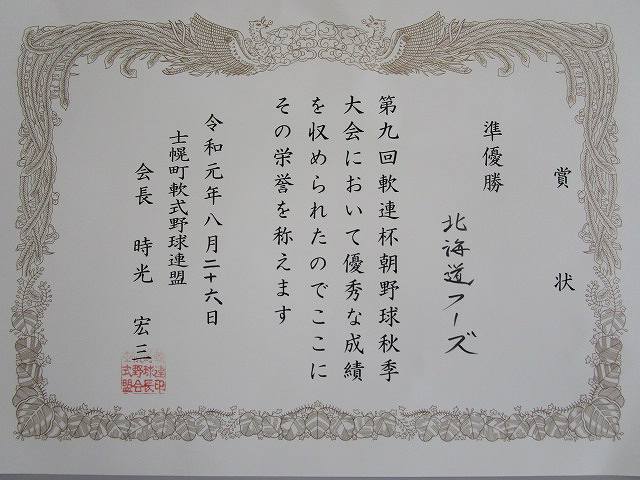 賞状
準優勝
北海道フーズ
第九回軟連杯朝野球秋季
大会において優秀な成績
を収められたのでここに
その栄誉を称えます
令和元年八月二十六日
士幌町軟式野球連盟
会長 時光 宏三